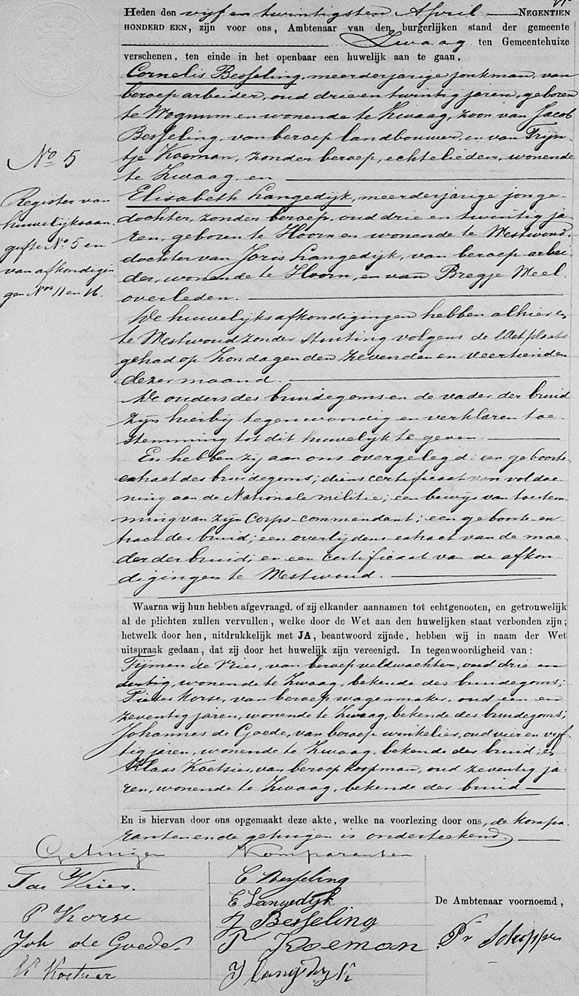 Heden den vijf en twintigsten April NEGENTIEN
HONDERD EEN, zijn voor ons, Ambtenaar van den burgerlijken stand der gemeente
Zwaag ten Gemeentehuize
verschenen, ten einde in het openbaar een huwelijk aan te gaan,
Cornelis Besseling, meerderjarige jonkman, van
beroep arbeider, oud drie en twintig jaren, geboren
te Wognum en wonende te Zwaag, zoon van Jacob
Besseling, van beroep landbouwer en van Trijn-
tje Koeman, zonder beroep, echtelieden, wonende
te Zwaag, en
Elisabeth Langedijk, meerderjarige jonge-
dochter, zonder beroep, oud drie en twintig ja-
ren, geboren te Hoorn en wonende te Westwoud,
dochter van Joris Langedijk, van beroep arbei-
der, wonende te Hoorn, en van Bregje Meel
overleden.
De huwelijksafkondigingen hebben alhier en
te Westwoud zonder stuiting volgens de Wet plaats
gehad op Zondagen den zevenden en veertienden
dezer maand.
De ouders des bruidegoms en de vader der bruid
zijn hierbij tegenwoordig en verklaren toe-
stemming tot dit huwelijk te geven.
En hebben zij aan ons overgelegd: een geboorte-
extract des bruidegoms; diens certificaat van voldoe-
ning aan de Nationale militie; een bewijs van toestem-
ming van zijn Corps-commandant; een geboorte-ex-
tract der bruid; een overlijdens-extract van de moe-
der der bruid; en een certificaat van de afkon-
digingen te Westwoud.
Waarna wij hun hebben afgevraagd, of zij elkander aannamen tot echtgenooten, en getrouwelijk
al de plichten zullen vervullen, welke door de Wet aan den huwelijken staat verbonden zijn;
hetwelk door hen, uitdrukkelijk met JA, beantwoord zijnde, hebben wij in naam der Wet
uitspraak gedaan, dat zij door het huwelijk zijn vereenigd. In tegenwoordigheid van:
Tijmen de Vries, van beroep veldwachter, oud drie en
dertig, wonende te Zwaag, bekende des bruidegoms;
Pieter Korse, van beroep wagenmaker, oud een en
zeventig jaren, wonende te Zwaag, bekende des bruidegoms;
Johannes de Goede, van beroep winkelier, oud vier en vijf-
tig jaren, wonende te Zwaag, bekende der bruid; en
Klaas Koetsier, van beroep koopman, oud zeventig ja-
ren, wonende te Zwaag, bekende der bruid
En is hiervan door ons opgemaakt deze akte, welke na voorlezing door ons, de kompa-
ranten en de getuigen is onderteekend.
No 5
Register van
huwelijksaan-
gifte No 5 en
van afkondigin-
gen Nos 11 en 16.
Getuigen
T de Vries.
P Korse
Joh de Goede.
K Koetsier
Komparanten
C Besseling
E Langedijk
J Besseling
T Koeman
J Langedijk
De Ambtenaar voornoemd,